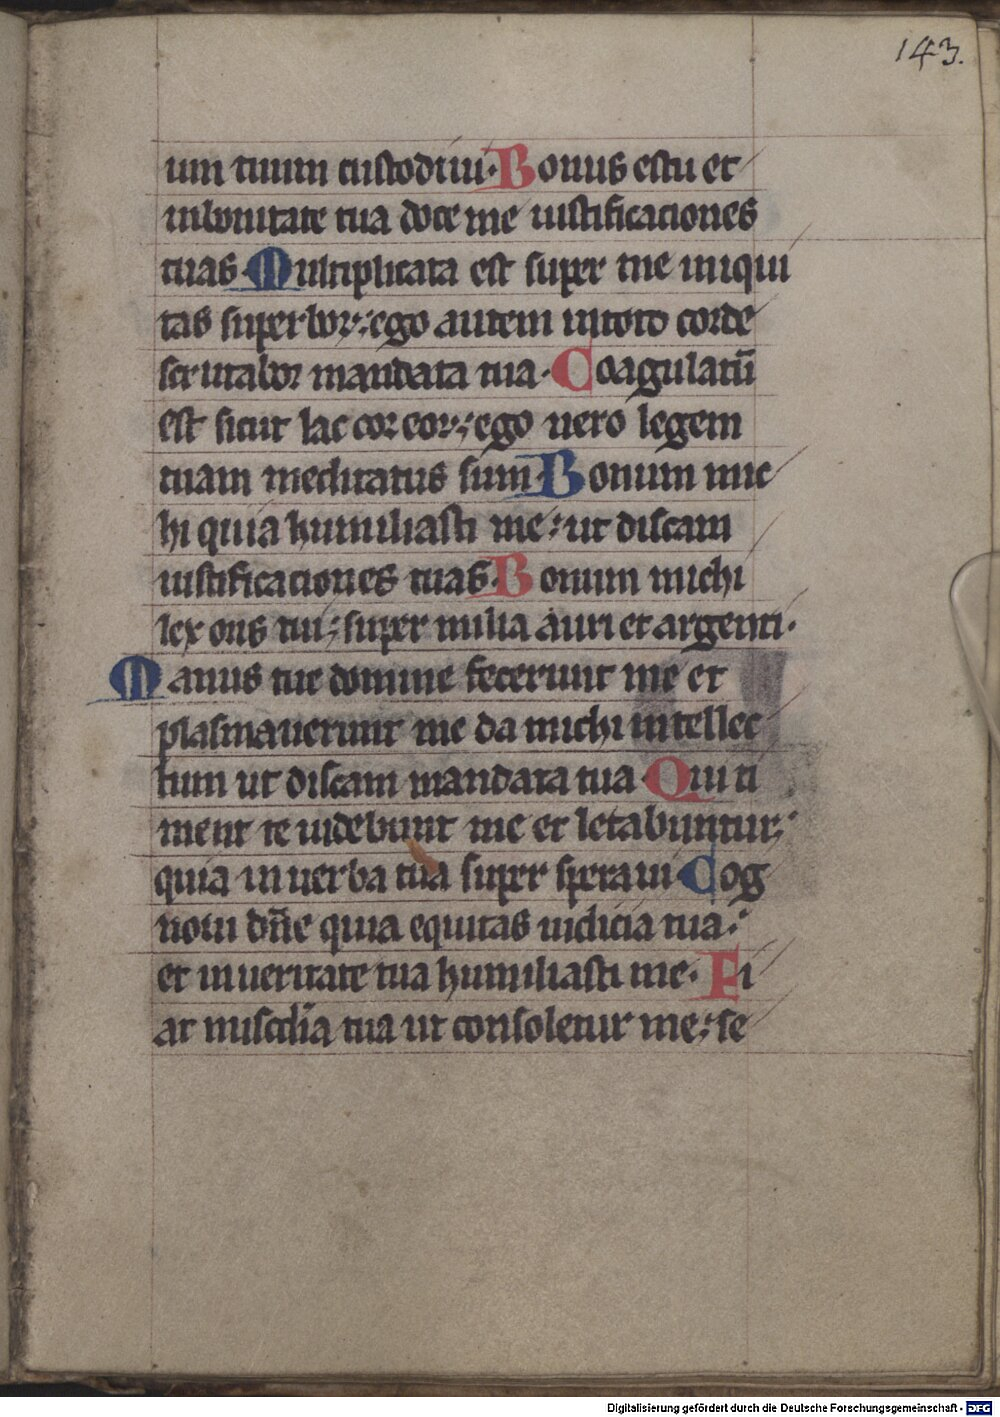 143.
um tuum custodiui. Bonus es tu et
in bonitate tua doce me iustificaciones
tuas Multiplicata est super me iniqui
tas superbor: ego autem in toto corde
scrutabor mandata tua. Coagulatū
est sicut lac cor eor: ego uero legem
tuam meditatus sum. Bonum mic
hi quia humiliasti me: ut discam
iustificaciones tuas. Bonum michi
lex oris tui: super milia auri et argenti.
Manus tue domine fecerunt me et
plasmauerunt me da michi intellec
tum ut discam mandata tua Qui ti
ment te uidebunt me et letabuntur:
quia in uerba tua super speraui Cog
noui dn̄e quia equitas iudicia tua:
et in ueritate tua humiliasti me. Fi
at misc̄dia tua ut consoletur me: se
Digitalisierung gefördert durch die Deutsche Forschungsgemeinschaft - DFG